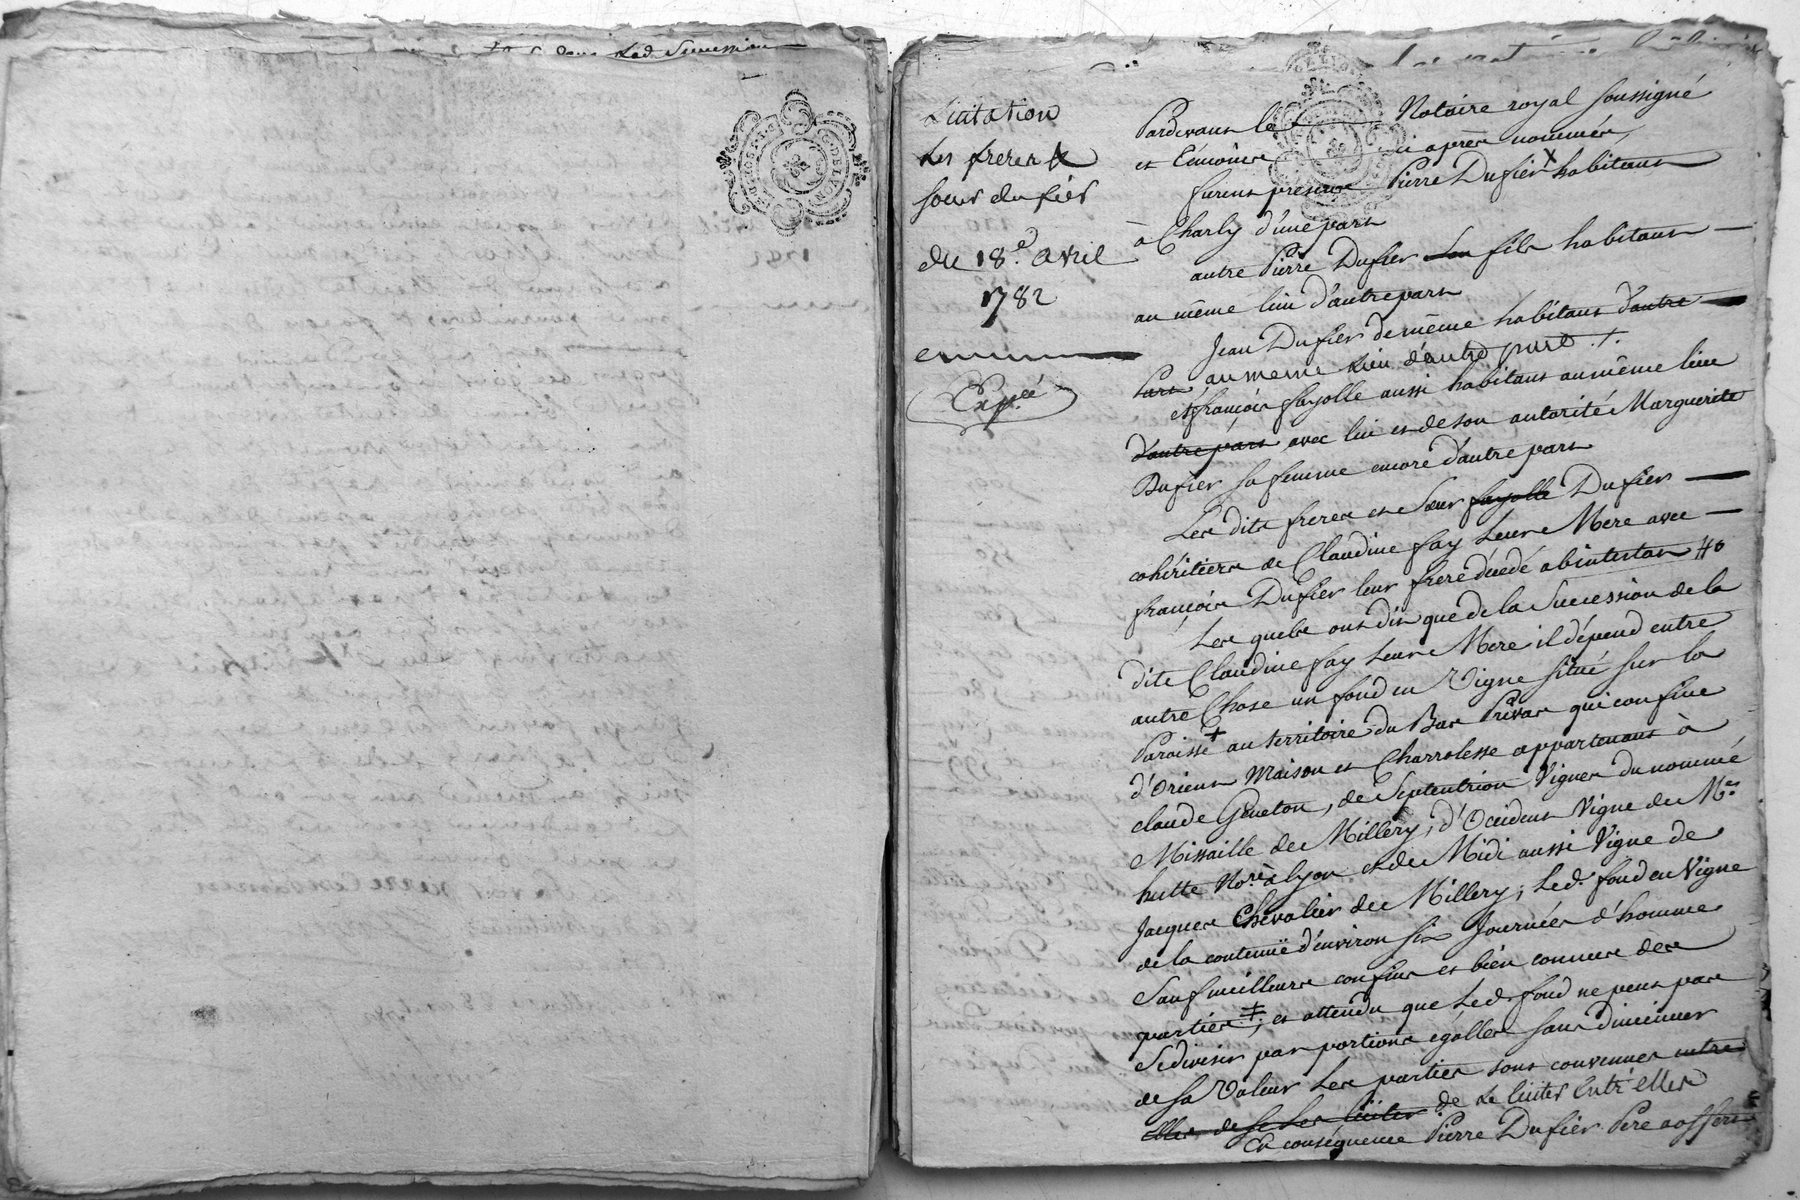 dans Lad. Succession
GENERALITE DE LYON
Licitation
Les freres &
soeur du fier
du 18.e avril
1782
Exp.ée
Pardevant le Notaire royal soussigné
et témoins ci apres nommés,
furent presens Pierre Dufier habitant
à Charly d'une part
autre Pierre Dufier son fils habitant
au même lieu d'autre part
Jean Dufier de même habitant d'autre
Part au meme Lieu d'autre part
et françois fayolle aussi habitant au même lieu
d'autre part avec lui et de son autorité Marguerite
Dufier sa femme encore d'autre part
Les dits freres et Soeur fayolle Dufier
cohéritiers de Claudine fay Leur Mere avec
françois Dufier leur frere décédé abintestat
Les quels ont dit que de la Succession de la
dite Claudine fay Leur Mere il dépend entre
autre Chose un fond en Vigne situé sur la
Paroisse + au territoire du Bas Privas qui confine
d'orient Maison et Charrolesse appartenant à
claude Geneton, de Septentrion Vignes du nommé
Missaille de Millery, d'Occident Vigne de Mre
hutte Nore à lyon et de Midi aussi Vigne de
Jacques Chevalier de Millery; Led. fond en Vigne
de la contenuë d'environ six Journées d'homme
Sauf meilleurs confins et bien connues des
parties; et attendu que Led. fond ne peut pas
Se diviser par portions egalles sans diminuer
de sa Valeur Les parties sont convenues entre
elles de se Les liciter de Le liciter Entr'elles
En conséquence Pierre Dufier Pere a offert